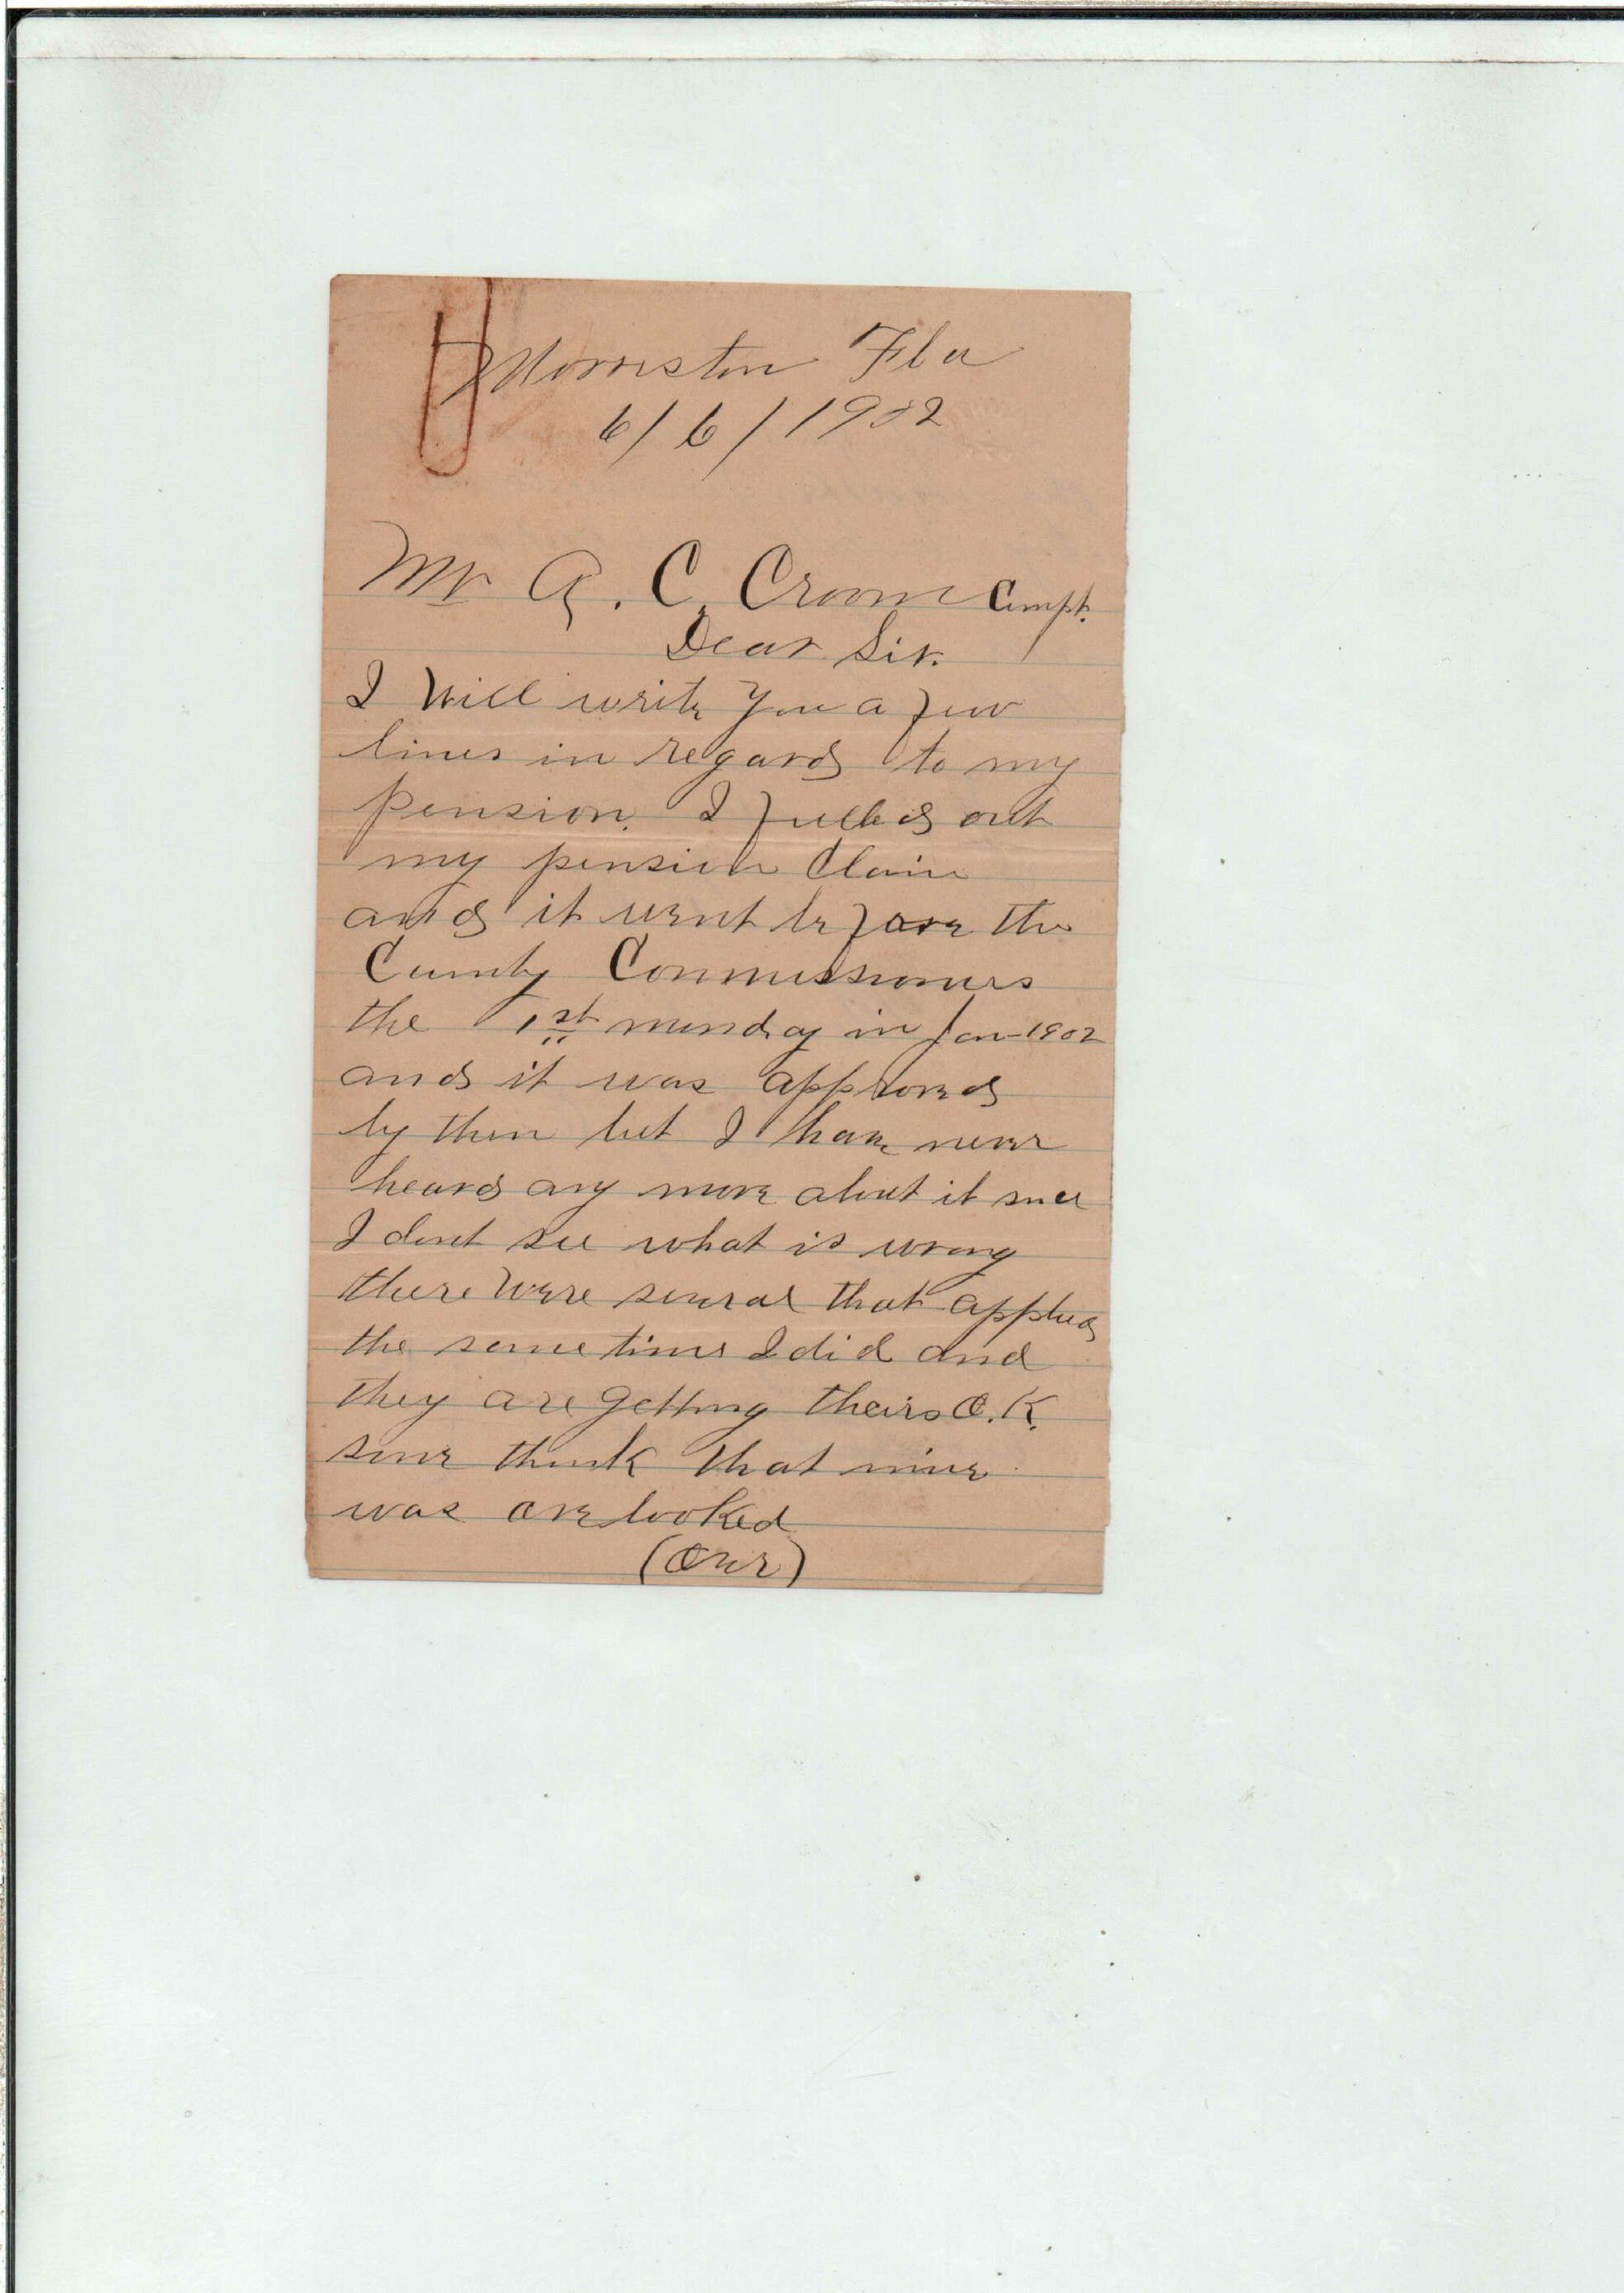 Morriston Fla
6/6/1902
Mr A. C. Croom Compt.
Dear Sir.
I Will write you a few
lines in regard to my
pension. I filled out
my pension Claim
and it went before the
County Commissioners
the 1st monday in Jan 1902
and it was approved
by them but I have never
heard any more about it since
I dont see what is wrong
there were several that applied
the same time I did and
they are getting theirs O.K.
think that mine
was overlooked
(Over)